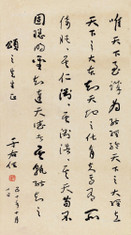 唯天下至誠為能經綸天下之大經立
天下之大本知天地之化育夫焉有所
倚肫肫其仁淵淵其淵浩浩其天苟不
固聰明聖知達天德者其孰能知之
先生正
于右任